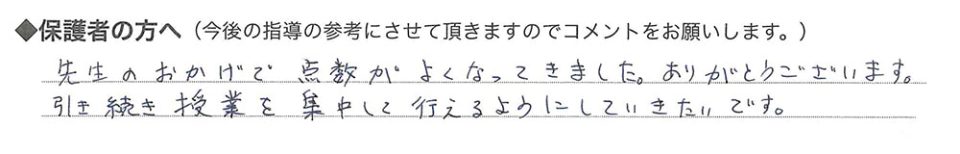 ◆保護者の方へ（今後の指導の参考にさせて頂きますのでコメントをお願いします。）
先生のおかげで 点数が よくなってきました。ありがとうございます。
引き続き 授業を 集中して 行えるようにしていきたいです。